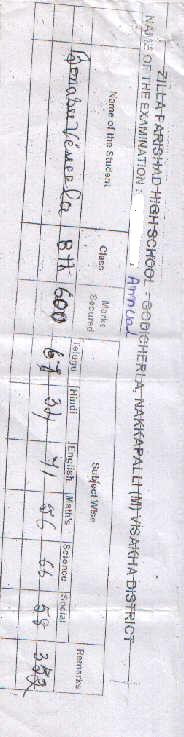 ZILLA PARISHAD HIGH SCHOOL : GODICHERLA, NAKKAPALLI (M) VISAKHA DISTRICT
NAME OF THE EXAMINATION : Annual
Name of the Student Class Marks Secured Subject Wise Remarks
Telugu Hindi English Math's Science Social
8th 600 67 41 56 66 58